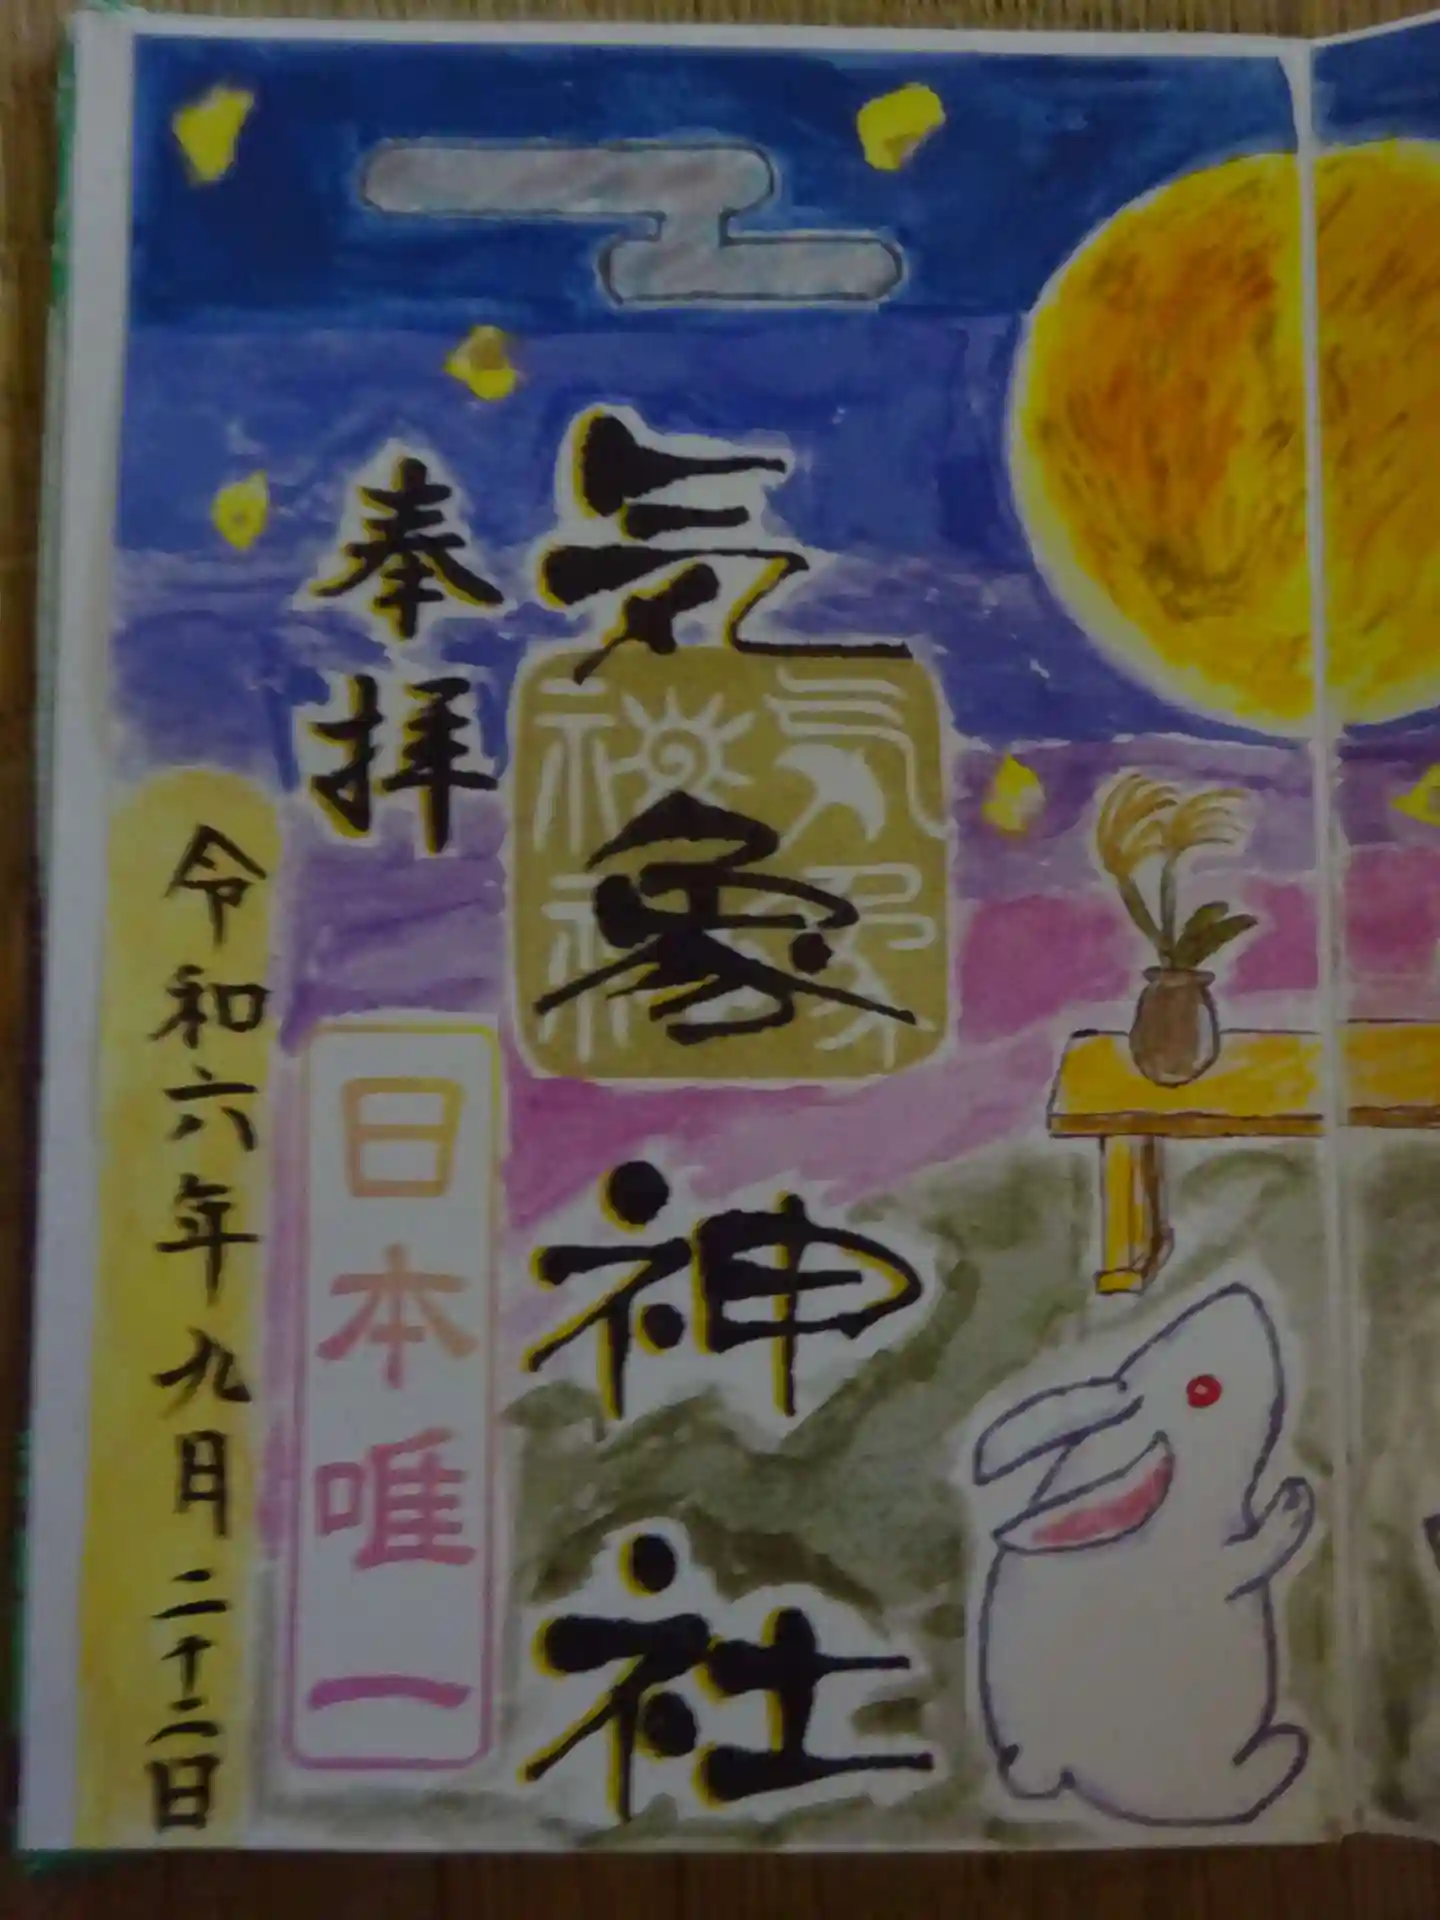 気象神社
気象
神社
奉拝
日本唯一
令和六年九月二十二日